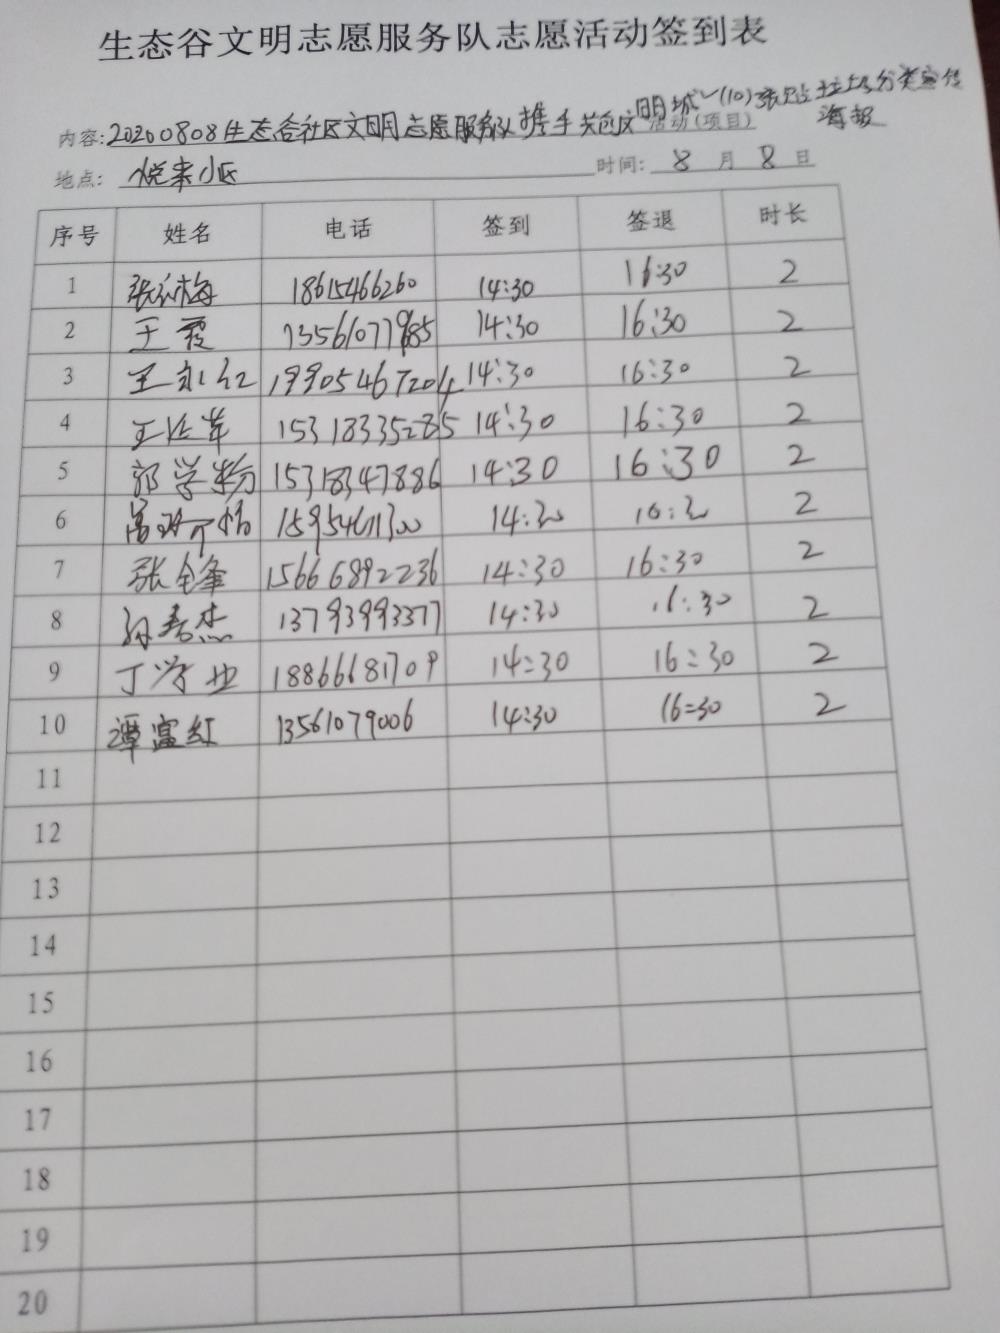 生态谷文明志愿服务队志愿活动签到表
内容:20200808生态谷社区文明志愿服务队携手共创文明城~(10)张贴垃圾分类宣传
活动(项目) 海报
地点: 悦来小区 时间: 8 月 8 日
序号 姓名 电话 签到 签退 时长
1 张红梅 18615466260 14:30 16:30 2
2 王霞 14:30 16:30 2
3 王永红 19905467204 14:30 16:30 2
4 王 15318335285 14:30 16:30 2
5 郭学粉 15318347886 14:30 16:30 2
6 15954611300 14:30 16:30 2
7 张全锋 15666892236 14:30 16:30 2
8 孙秀杰 13793993377 14:30 16:30 2
9 丁学业 18866681709 14:30 16:30 2
10 谭富红 13561079006 14:30 16:30 2
11
12
13
14
15
16
17
18
19
20